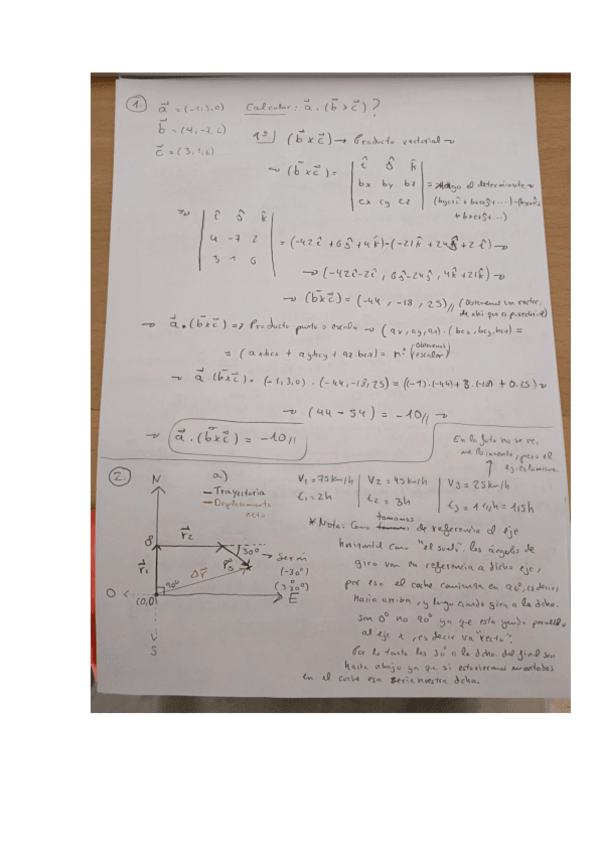 1. a⃗ = (-1,3,0) Calcular: a⃗ · (b⃗ x c⃗)?
b⃗ = (4,-7,2)
c⃗ = (3,1,6)
1º (b⃗ x c⃗) → Producto vectorial
(b⃗ x c⃗) = | î ĵ k̂ |
| bx by bz | = hago el determinante
| cx cy cz |
| î ĵ k̂ |
| 4 -7 2 | = (-42î + 6ĵ + 4k̂) - (-21k̂ + 24ĵ + 2î) →
| 3 1 6 |
→ (-42î-2î, 6ĵ-24ĵ, 4k̂+21k̂)
→ (b⃗ x c⃗) = (-44, -18, 25) // (obtenemos un vector,
de ahí que
→ a⃗ · (b⃗ x c⃗) => Producto punto o escalar → (ax, ay, az) · (bcx, bcy, bcz) =
= (ax bcx + ay bcy + az bcz) = nº (obtenemos escalar)
→ a⃗ · (b⃗ x c⃗) = (-1,3,0) · (-44,-18,25) = ((-1)·(-44) + 3·(-18) + 0·25)
→ (44 - 54) = -10 //
→ a⃗ · (b⃗ x c⃗) = -10 //
En la foto no se ve
pero el
2. a)
N
— Trayectoria
— Desplazamiento
V1 = 75 km/h
t1 = 2h
V2 = 45 km/h
t2 = 3h
V3 = 25 km/h
t3 = 1 1/2 h = 1,5h
r⃗2
r⃗1
r⃗3
Δr⃗
30°
→ Serán
(-30°)
(330°)
90°
O
(0,0)
E
S
* Nota: Como tomamos de referencia el eje
horizontal como "el suelo", los ángulos de
giro van en referencia a dicho eje,
por eso el coche comienza en 90º, es decir,
hacia arriba, y luego cuando gira a la dcha.
son 0º no 90º ya que esta yendo paralelo
al eje x, es decir va "recto".
Por lo tanto los 30º a la dcha. del final son
hacia abajo ya que si estuvieramos montados
en el coche esa seria nuestra dcha.